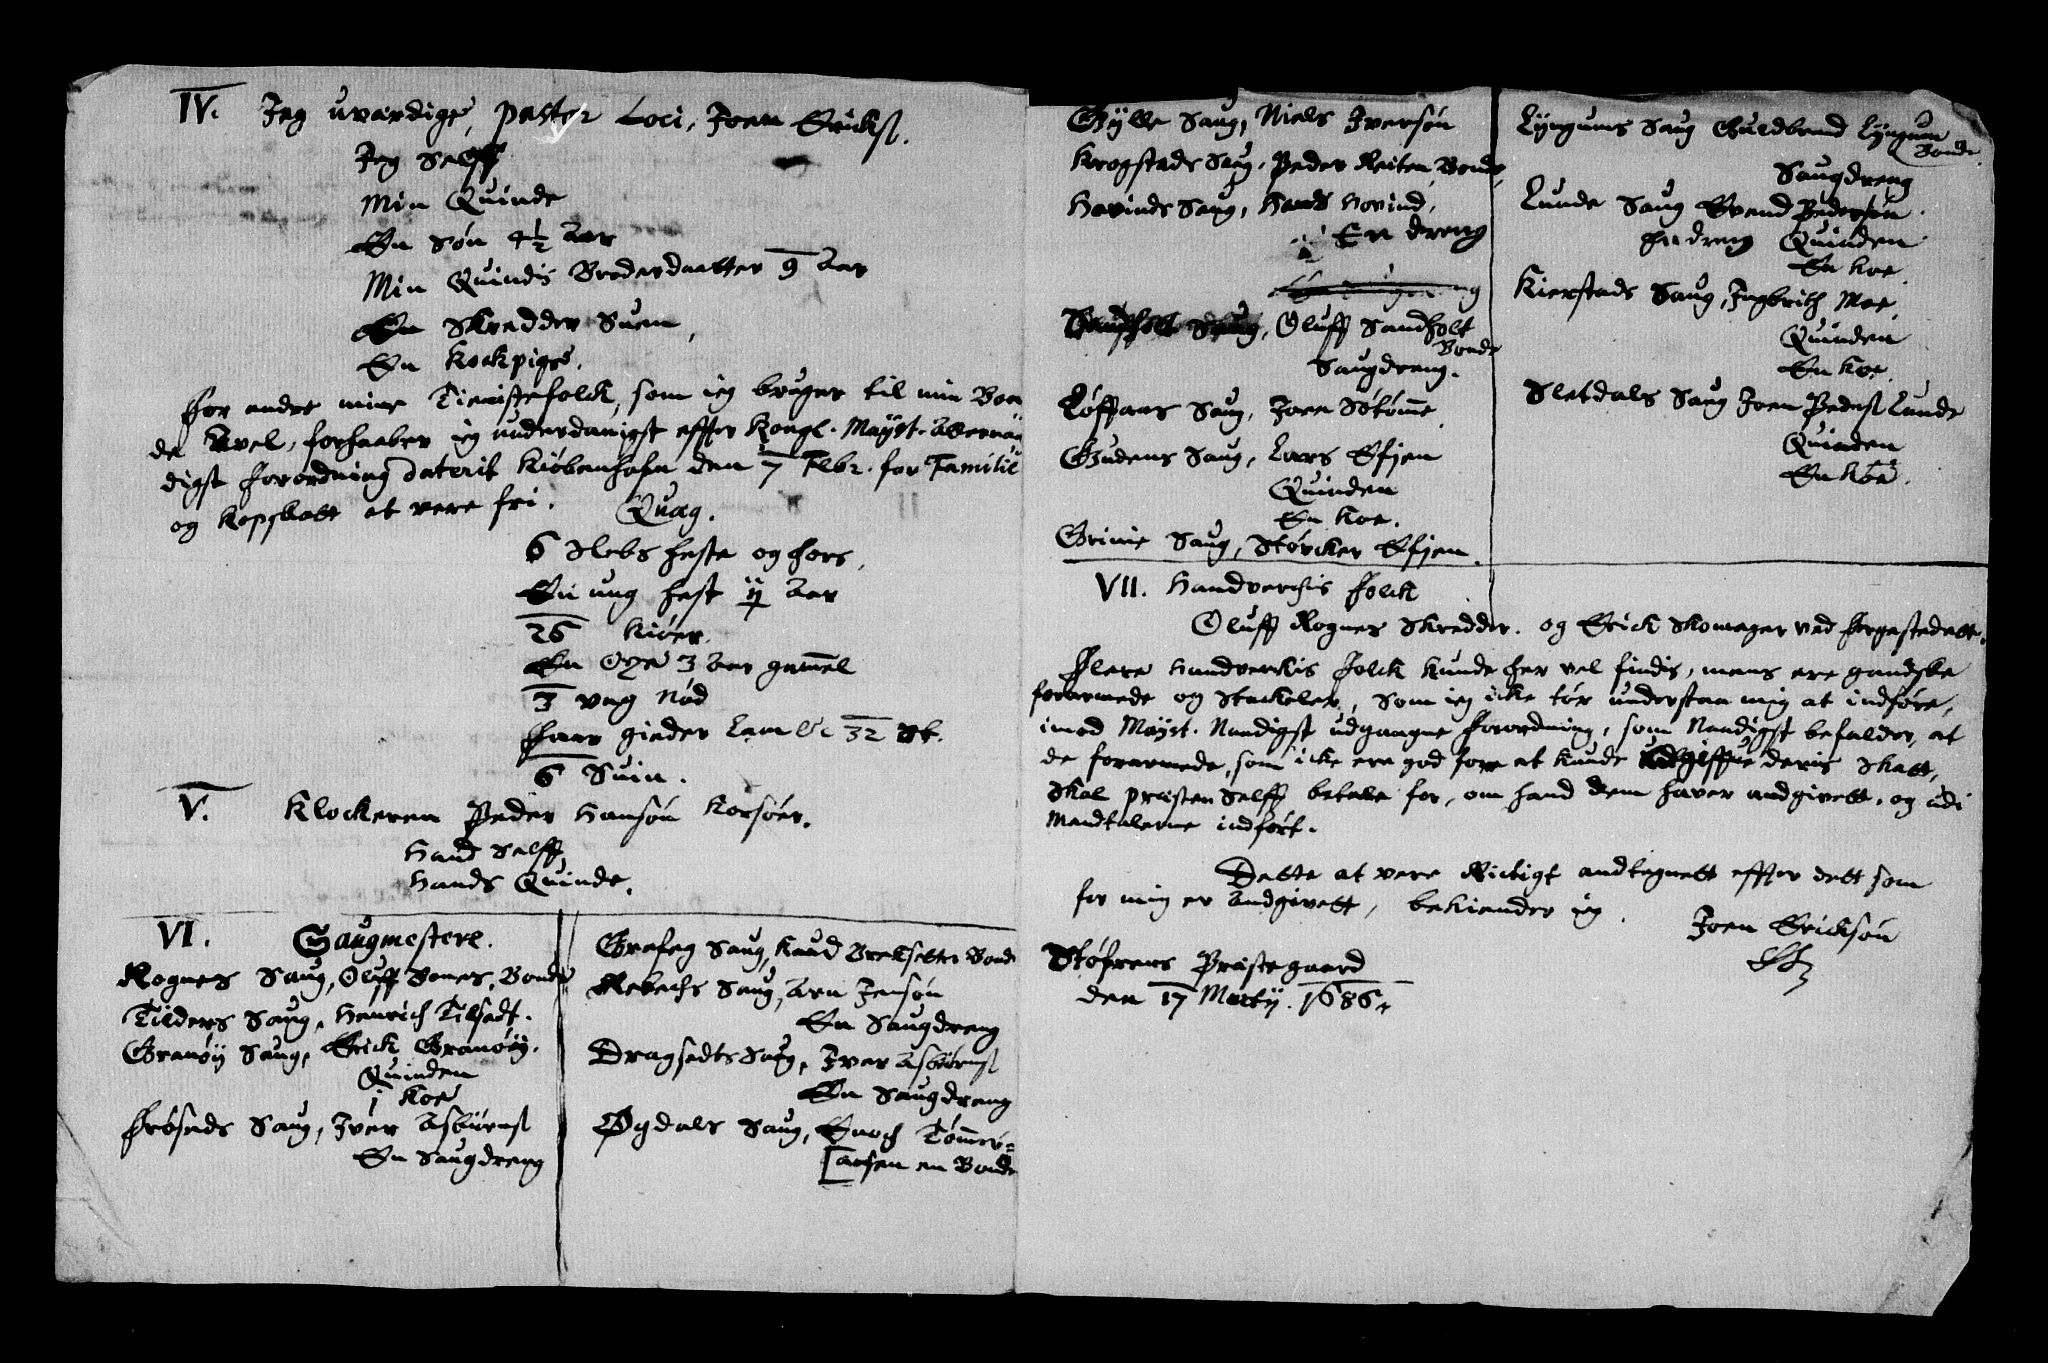 IV. Jeg uverdige, pastor Loci, Joen Ericks.
Jeg Self
Min Quinde
En Søn 4½ Aar
Min Quindis Broderdaatter 9 Aar
En Skredder Suen,
En Kockpige.
For andre mine Tienistefolck, som ieg bruger til min Boen
de Avel, forhaaber ieg underdanigst effter Kongl. Mayst. Allernaa
digst forordning Daterit Kiøbenhafn den 7 Febr. for Familie
og Kopskatt at vere fri.
Quæg.
6 Slebs heste og hors,
En ung hest ij Aar
26 Kiøer.
En Oxe 3 Aar gammel
3 ung Nød
Faar gieder Lam &c 32 St.
6 Suin.
V. Klockeren Peder Hansøn Korsøer.
Hand Selff
Hands Quinde.
VI. Saugmestere.
Rognes Saug, Oluff Bones, Bonde
Tilders Saug, Henrich Tilsedt.
Granøÿ Saug, Erick Granøÿ.
Quinden
1 Koe
Frøseds Saug, Iver Asbiørns
En Saugdreng
Grefseg Saug, Knud Bredsetter Bonde
Rebechs Saug, Arn Jensøn
En Saugdreng
Dragsedts Saug, Iver Asbiørns
En Saugdreng
Øgdals Saug, Enoch Tømmer=
[aasen en Bonde
Gylle Saug, Niels Iversøn
Krogstads Saug, Peder Reiten, Bonde,
Hovinds Saug, Hans Hovind,
En dreng
Sandholt Saug, Oluff Sandholt
Bonde
Saugdreng.
Løffaas Saug, Joen Støtønne
Gudens Saug, Lars Efjen
Quinden
En Koe.
Grinie Saug, Størcker Efjen.
Lÿngums Saug Guldbrand Lÿngum
Bonde
Saugdreng
Lunde Saug Svend Pedersøn
En dreng Quinden
En Koe
Kierstads Saug, Ingbrith Moe,
Quinden
En Koe.
Sletdals Saug Joen Peders Lunde
Quinden
En Koe.
VII. Handverchis Folck
Oluff Rognes Skredder. og Erick Skomager ved Forgestedett.
Flere Handverkis Folck kunde her vel findis, mens ere gandske
forarmede og Stackeler, Som ieg icke tør understaa mig at indføre,
imod Mayst. Naadigst udgangne Forordning, som Naadigst befalder, at
de forarmede, som icke ere god for at kunde udgiffve deris Skatt,
Skal præsten Selff betale for, om hand dem hafver andgivett, og udi
Mandtalerne indført.
Dette at vere Rictigt andtegnett effter dett som
for mig er Andgivett, bekiender ieg.
Joen Ericksøn
Støfrens Præstegaard
den 17 Martij. 1686.